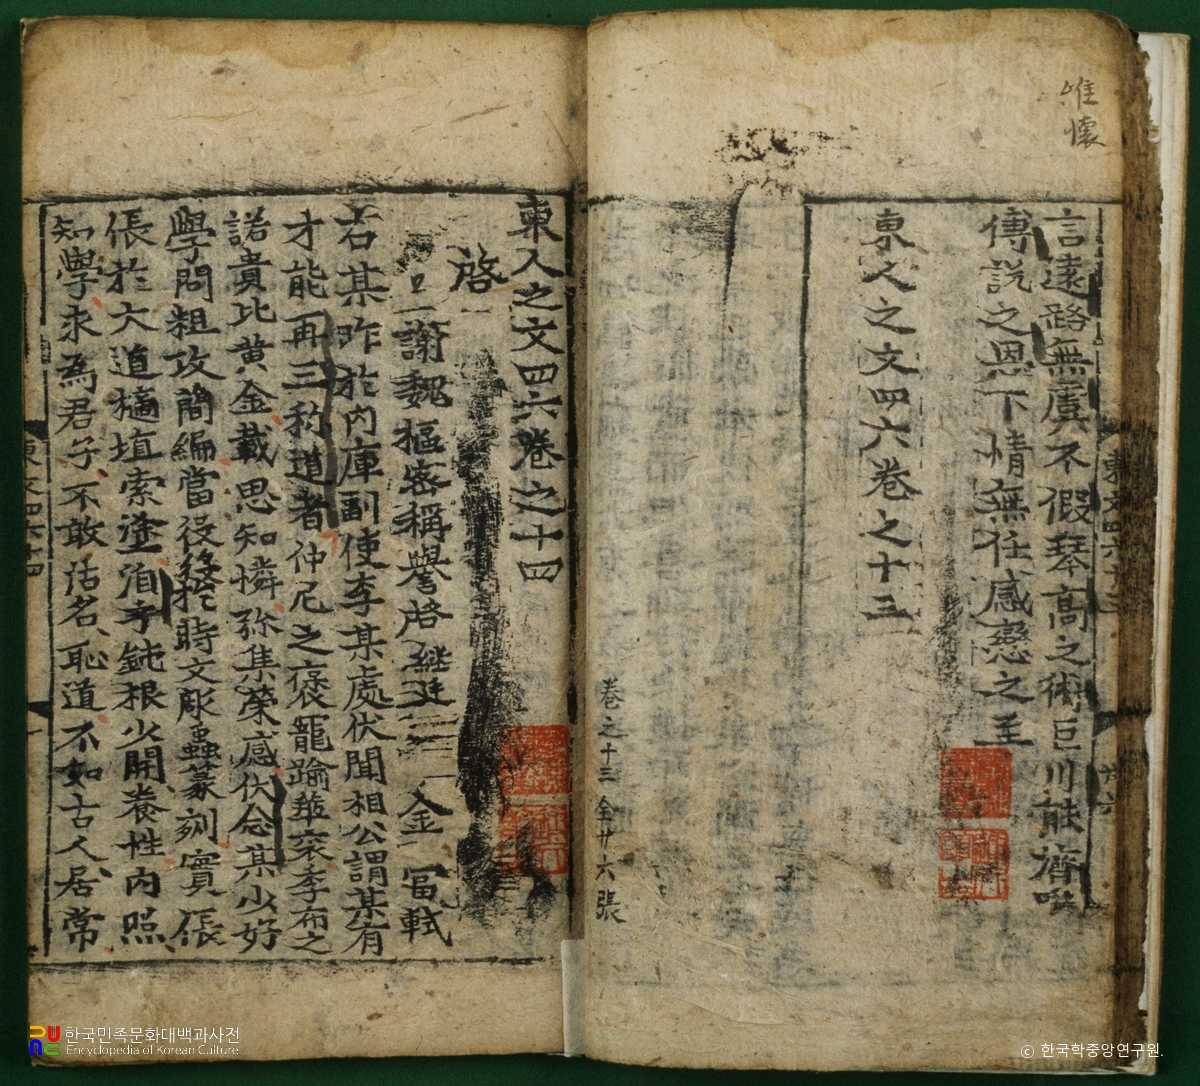 惟
懷
言遠路無虞不假琴高之術巨川能濟
傅說之恩下情無任感戀之至
東人之文四六卷之十三
卷之十三 全廿六張
東人之文四六卷之十四
啓
謝魏樞密稱譽啓 金富軾
右某昨於內庫副使李某處伏聞相公謂某有
才能再三称道者仲尼之褒寵踰華袞季布之
諾貴比黄金載思知憐弥集榮感伏念某少好
學問粗攻簡編當役於時文彫蟲篆刻實倀
倀於大道擿埴索塗洎乎鈍根少開養性內照
知學求為君子不敢沽名恥道不如古人居常
東文四六十四
한국민족문화대백과사전
Encyclopedia of Korean Culture
© 한국학중앙연구원.